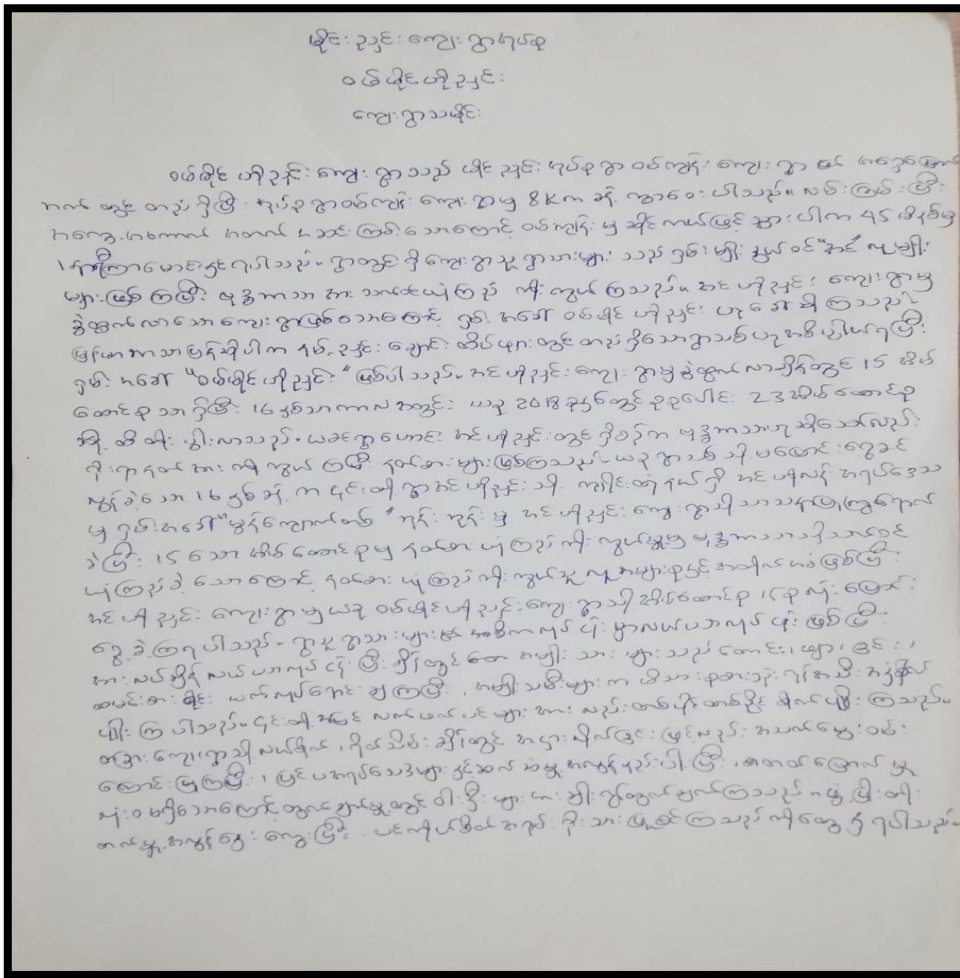 မိုင်းညှင်းကျေးရွာအုပ်စု
ဝမ်မိုင်ဟိုညှင်း
ကျေးရွာသမိုင်း
ဝမ်မိုင်ဟိုညှင်းကျေးရွာသည် မိုင်းညှင်းအုပ်စုရွာ ဝမ်ကျန်းကျေးရွာ ၏ အရှေ့မြောက်
ဘက်တွင် တည်ရှိပြီး အုပ်စုရွာဝမ်ကျန်းကျေးရွာမှ 8Km ခန့် ကွာဝေးပါသည်။ လမ်းကြမ်းပြီး
အကွေ့အကောက် အတက် ဆင်းကြမ်းသောကြောင့် ဝမ်ကျန်းမှ ဆိုင်ကယ်ဖြင့် သွားပါက 45 မိနစ်မှ
၁ နာရီကြာမောင်းနှင်ရပါသည်။ ရွာတွင်ရှိကျေးရွာသူရွာသားများသည် ရှမ်းမျိုးနွယ်ဝင် "အင်" လူမျိုး
များဖြစ်ကြပြီး ဗုဒ္ဓဘာသာအား သက်ဝင်ယုံကြည် ကိုးကွယ်ကြသည်။ အင်ဟိုညှင်း ကျေးရွာမှ
ခွဲထွက်လာသောကျေးရွာဖြစ်သောကြောင့် ရှမ်းအခေါ် ဝမ်မိုင်ဟိုညှင်း ဟုခေါ်ဆိုကြသည်။
မြန်မာဘာသာပြန်ဆိုပါက နမ့်ညှင်းချောင်းထိပ်ဖျားတွင်တည်ရှိသောရွာသစ်ဟုအဓိပ္ပါယ်ရပြီး
ရှမ်းအခေါ် "ဝမ်မိုင်ဟိုညှင်း" ဖြစ်ပါသည်။ အင်ဟိုညှင်းကျေးရွာမှခွဲထွက်လာချိန်တွင် 15 အိမ်
ထောင်စုသာရှိပြီး 16 နှစ်သာကာလအတွင်း ယခု 2018 ခုနှစ်တွင် စုစုပေါင်း 23 အိမ်ထောင်စု
အထိ တိုးပွါးလာသည်။ ယခင်ရွာဟောင်း အင်ဟိုညှင်းတွင် ရှိစဉ်က ဗုဒ္ဓဘာသာဟုဆိုသော်လည်း
ရိုးရာနတ်အား ကိုးကွယ်ကြပြီး နတ်စားများဖြစ်ကြသည်။ ယခုရွာသစ်သို့မပြောင်းရွှေ့ခင်
လွန်ခဲ့သော 16 နှစ်ခန့်က ၎င်းတို့ရွာအင်ဟိုညှင်းသို့ ကျိုင်းတုံနယ်ရှိ အင်ဟိုလန် အရပ်ဒေသ
မှ ရှမ်းအခေါ် "မွန်ကျောက်တမ်" ဘုန်းဘုန်းမှ အင်ဟိုညှင်းကျေးရွာသို့သာသနာပြုကြွရောက်
ခဲ့ပြီး 15 သော အိမ်ထောင်စုမှ နတ်စားယုံကြည်ကိုးကွယ်မှုမှ ဗုဒ္ဓဘာသာသို့သက်ဝင်
ယုံကြည်ခဲ့သောကြောင့် နတ်စားယုံကြည်ကိုးကွယ်သူလူအများစုနှင့် အတိုက်အခံဖြစ်ပြီး
အင်ဟိုညှင်းကျေးရွာမှယခု ဝမ်မိုင်ဟိုညှင်းကျေးရွာသို့အိမ်ထောင်စု 15စုလုံးပြောင်း
ရွှေ့ခဲ့ကြရပါသည်။ ရွာသူရွာသားများ၏ အဓိကလုပ်ငန်းမှာလယ်ယာလုပ်ငန်းဖြစ်ပြီး
အားလပ်ချိန် လယ်ယာလုပ်ငန်းပြီးချိန်တွင်တော့ အမျိုးသားများသည် တောင်း၊ ဖျာ၊ ခြင်း၊
ထမင်းစားခိုင်း ယက်လုပ်ရောင်းချကြပြီး၊ အမျိုးသမီးများက မိသားစုစားသုံးရန်အသီးအနှံစိုက်
ပျိုးကြပါသည်။ ၎င်းတို့အပြင် လက်ဖက်ပင်များအားလည်းတစ်ပိုင်တစ်နိုင်စိုက်ပျိုးကြသည်။
တခြားကျေးရွာသို့လယ်စိုက်၊ ရိတ်သိမ်းချိန်တွင် အငှားလိုက်ခြင်းဖြင့်လည်း အသက်မွေးဝမ်း
ကျောင်းပြုကြပြီး၊ ပြင်ပအရပ်ဒေသများနှင့်ဆက်ဆံမှုအလွန်နည်းပါးပြီး၊ စာတတ်မြောက်မှု
လုံးဝမရှိသောကြောင့် တွက်ချက်မှုတွင် ဝါးခြမ်းများအားချိုး၍တွက်ချက်ကြသည်။ ဖွံ့ဖြိုးတိုး
တက်မှုအလွန်နှေးကွေးပြီး ပင်ကိုယ်စိတ်အရင်းရိုးသားဖြူစင်ကြသည်ကိုတွေ့ရှိရပါသည်။